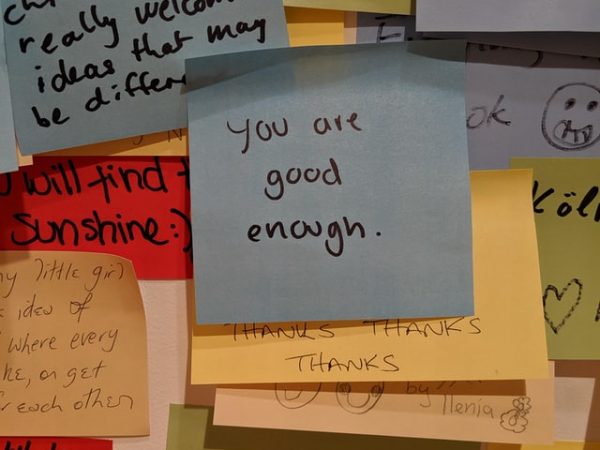 really welcom
ideas that may
be differ
You are
good
enough.
ok
will find
Sunshine :)
Köl
little girl
idea of
where every
he, on get
each other
THANKS THANKS
THANKS
by
Ilenia